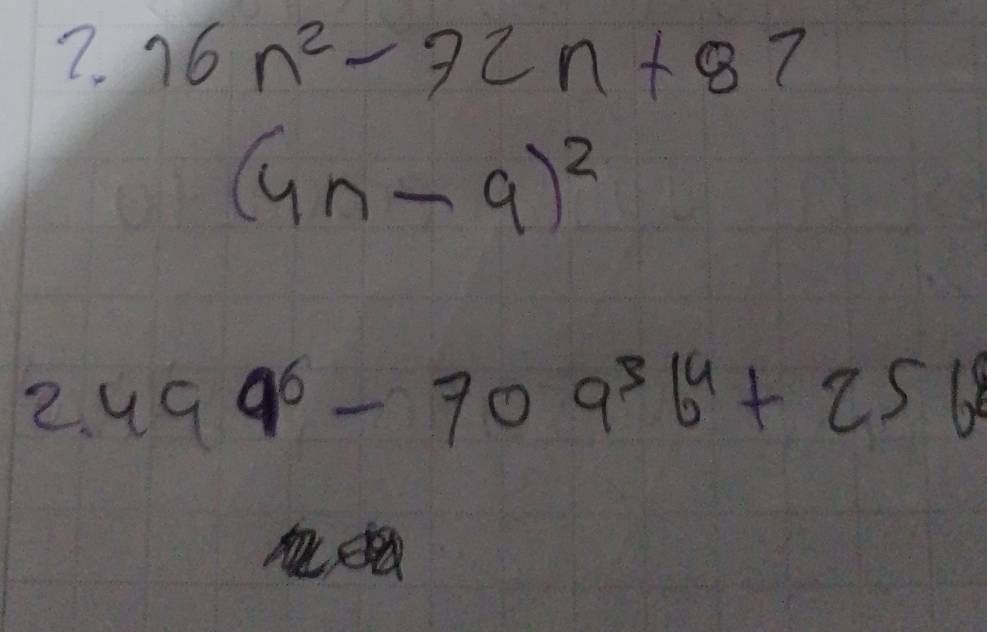 1. 16n² - 72n + 81
(4n - 9)²
2. 49a⁶ - 70a³b⁴ + 25b⁸